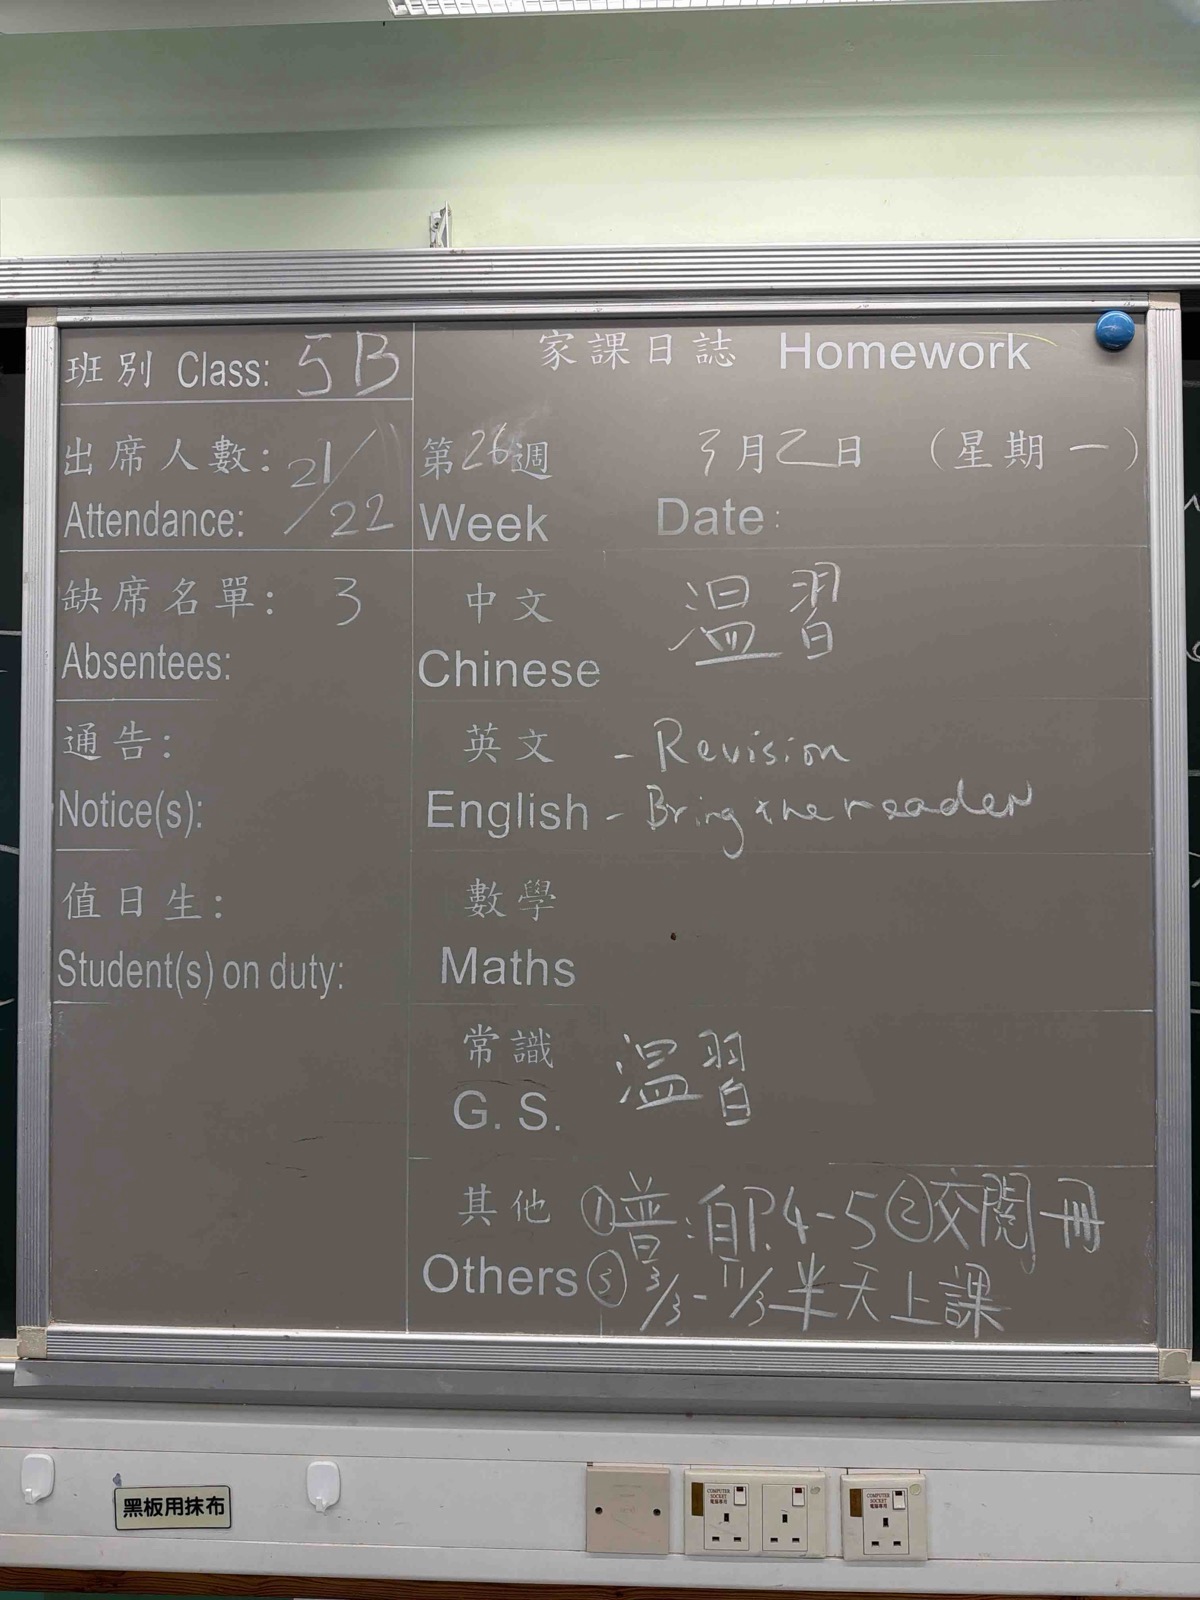 班別 Class: 5B
出席人數: 21/22
Attendance:
缺席名單: 3
Absentees:
通告:
Notice(s):
值日生:
Student(s) on duty:
家課日誌 Homework
第26週 3月2日 (星期一)
Week Date:
中文 温習
Chinese
英文 - Revision
English - Bring the reader
數學
Maths
常識 温習
G. S.
其他 ①普:自P.4-5 ②交閱冊
Others ③3/3-11/3半天上課
黑板用抹布
COMPUTER SOCKET 電腦專用
COMPUTER SOCKET 電腦專用